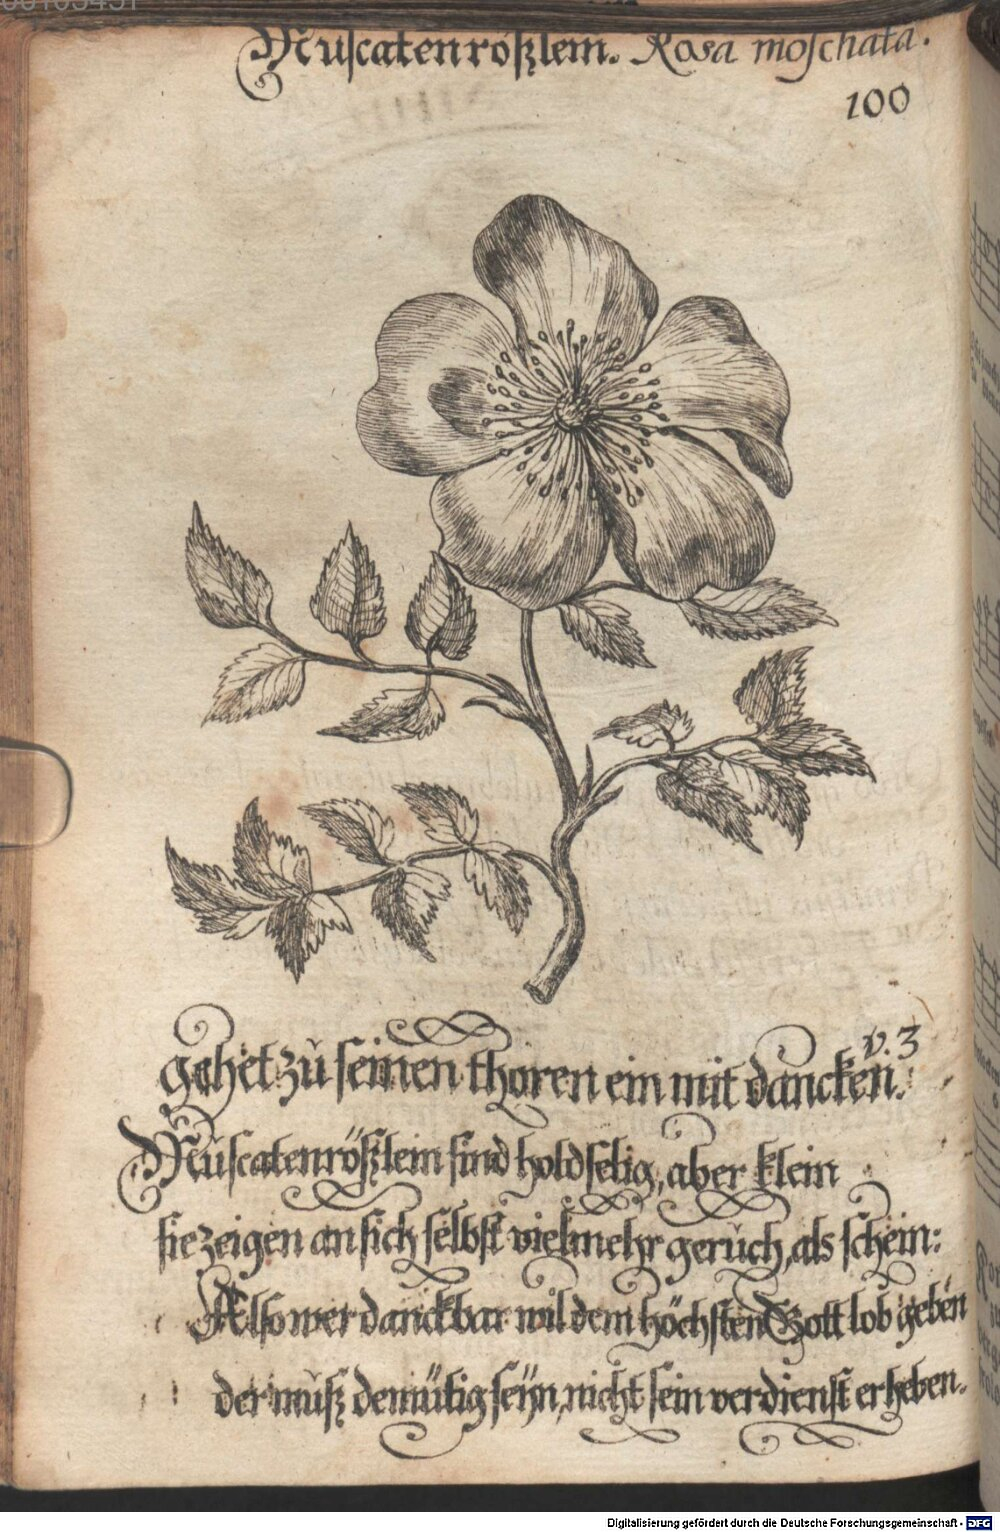 Muscatenrößlein. Rosa moschata.
100
v. 3
gehet zu seinen thoren ein mit dancken.
Muscatenrößlein sind holdselig, aber klein
sie zeigen an sich selbst vielmehr geruch, als schein:
Also wer danckbar wil dem höchsten Gott lob geben
der muß demütig seyn, nicht sein verdienst erheben.
Digitalisierung gefördert durch die Deutsche Forschungsgemeinschaft - DFG